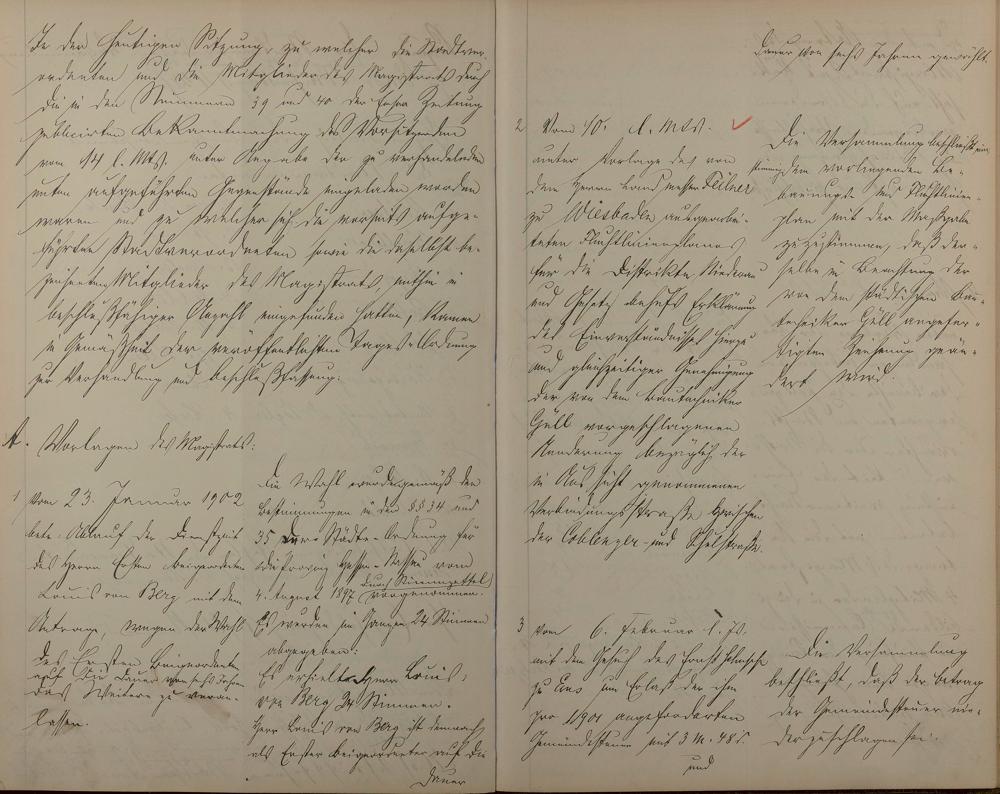 In der heutigen Sitzung, zu welcher die Stadtver-
ordneten und die Mitglieder des Magistrats durch
die in den Nummern 39 und 40 der Emser Zeitung
publicirten Bekanntmachung des Vorsitzenden
vom 14 l. Mts. unter Angabe der zu verhandelnden
unten aufgeführten Gegenstände eingeladen worden
waren und zu welcher sich die vorseits aufge-
führten Stadtverordneten sowie die daselbst be-
zeichneten Mitglieder des Magistrats, mithin in
beschlußfähiger Anzahl eingefunden hatten, kamen
in Gemäßheit der veröffentlichten Tages-Ordnung
zur Verhandlung und Beschlußfassung:
A. Vorlagen des Magistrats:
1 vom 23. Januar 1902
betr. Ablauf der Dienstzeit
des Herrn Ersten Beigeordneten
Louis von Berg mit dem
Antrage, wegen der Wahl
des Ersten Beigeordneten
auf die Dauer von sechs Jahren
das Weitere zu veran-
lassen.
Die Wahl wurde gemäß den
Bestimmungen in den §§ 34 und
35 der Städte-Ordnung für
die Provinz Hessen-Nassau vom
4. August 1897 durch Stimmzettel
vorgenommen.
Es wurden im Ganzen 24 Stimmen
abgegeben:
Es erhielt Herr Louis
von Berg 24 Stimmen.
Herr Louis von Berg ist demnach
als Erster Beigeordneter auf die
Dauer
Dauer von sechs Jahren gewählt.
2 Vom 10. l. Mts.
unter Vorlage des von
dem Herrn Landmesser Feilner
zu Wiesbaden ausgearbei-
teten Fluchtlinienplanes
für die Distrikte
und behufs Erklärung
des Einverständnisses hierzu
und gleichzeitiger Genehmigung
der von dem Bautechniker
Güll vorgeschlagenen
Aenderung bezüglich der
in Aussicht genommenen
Verbindungsstraße zwischen
der Coblenzer- und Schulstraße.
Die Versammlung beschließt ein-
stimmig, dem vorliegenden Be-
bauungs- und Fluchtlinien-
plan mit der Maßgabe
zuzustimmen, daß der-
selbe in Beachtung der
von dem städtischen Bau-
techniker Güll angefer-
tigten Zeichnung geän-
dert wird.
3 vom 6. Februar l. Js.
mit dem Gesuch des Ernst
zu Ems um Erlaß der ihm
pro 1901 angeforderten
Gemeindesteuer mit 3 M. 48 d.
und
Die Versammlung
beschließt, daß der Betrag
der Gemeindesteuer nie-
derzuschlagen sei.